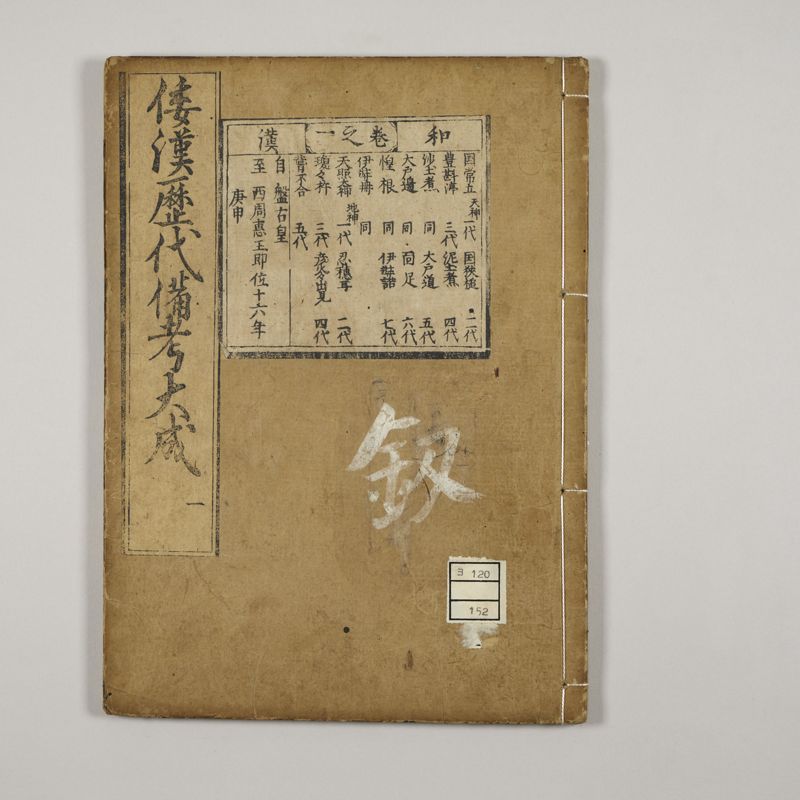 倭漢歴代備考大成 一
和
巻之一
国常立 天神 一代 国狭槌 二代
豊斟渟 三代 泥土煮 四代
沙土煮 同 大戸道 五代
大戸邊 同 面足 六代
惶根 同 伊弉諾 七代
伊弉冊 同
天照太神 地神 一代 忍穂耳 二代
瓊々杵 三代 彦火々出見 四代
葺不合 五代
漢
自 盤古皇
至 西周惠王即位十六年
庚申
ヨ 120
152